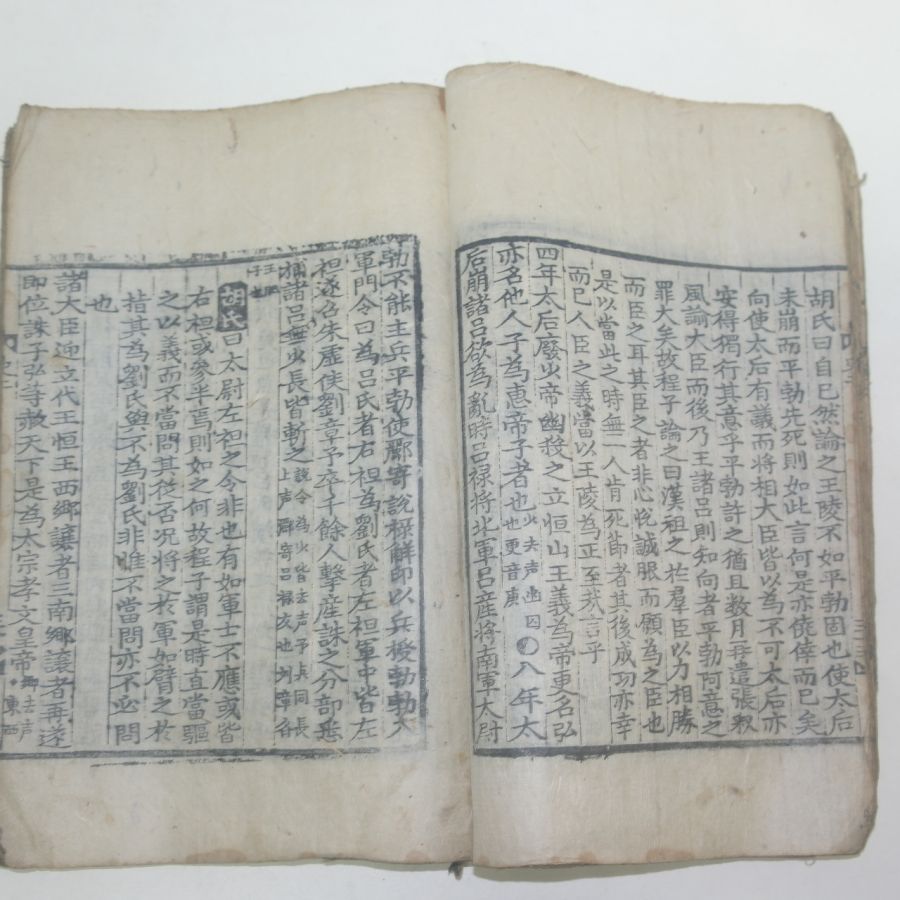 胡氏曰自已然論之王陵不如平勃固也使太后
未崩而平勃先死則如此言何是亦僥倖而已矣
向使太后有議而將相大臣皆以為不可太后亦
安得獨行其意乎平勃許之猶且數月再遣張釈
風諭大臣而後乃王諸呂則知向者平勃阿意之
罪大矣故程子論之曰漢祖之於羣臣以力相勝
而臣之耳其臣之者非心悅誠服而願為之臣也
是以當此之時無一人肯死節者其後成功亦幸
而已人臣之義當以王陵為正至哉言乎
四年太后廢少帝幽殺之立恒山王義為帝更名弘
亦名他人子為惠帝子者也少去声幽囚也更音庚○八年太
后崩諸呂欲為亂時呂禄将北軍呂産將南軍太尉
勃不能主兵平勃使酈寄說禄解印以兵授勃勃入
軍門令曰為呂氏者右袒為劉氏者左袒軍中皆左
袒遂召朱虛侯劉章予卒千餘人擊産誅之分部悉
捕諸呂無少長皆斬之說令為少皆去声予上同長上声酈寄呂禄友也劉章谷王肥子也
胡氏曰太尉左袒之令非也有如軍士不應或皆
右袒或参半焉則如之何故程子謂是時直當驅
之以義而不當問其從否况將之於軍如臂之於
指其為劉氏與不為劉氏非惟不當問亦不必問
也
諸大臣迎立代王恒王西郷讓者三南郷讓者再遂
即位誅子弘等赦天下是為太宗孝文皇帝郷去声東西